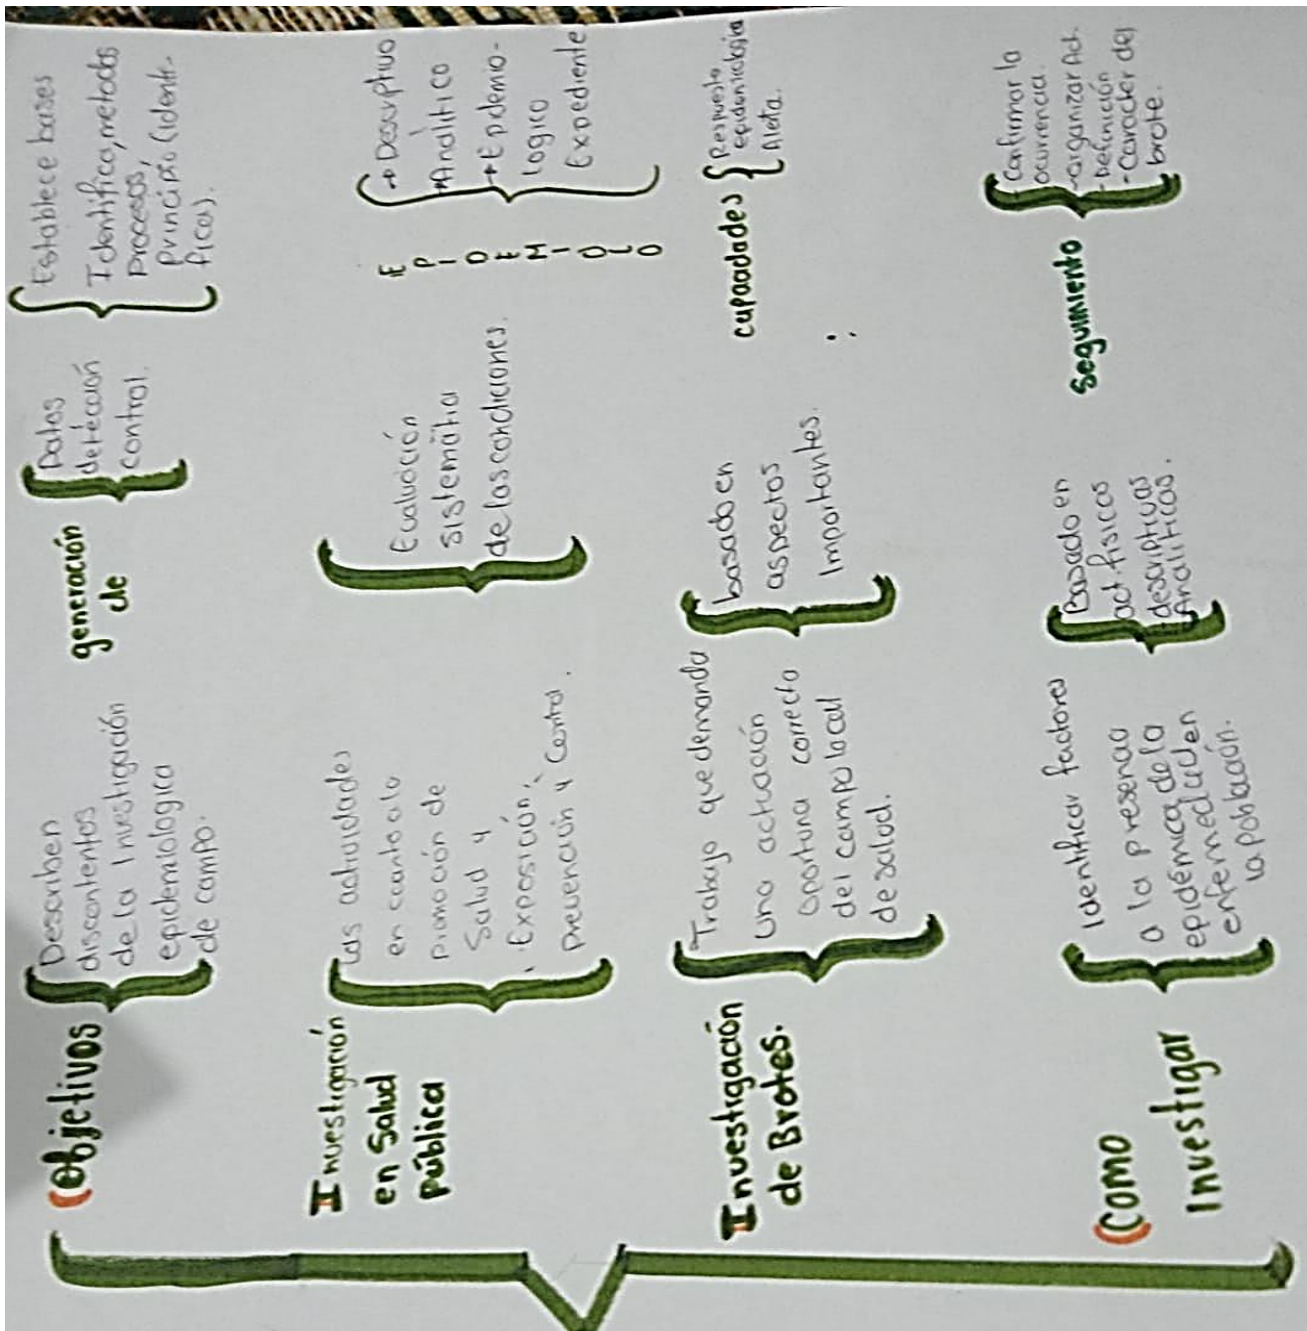 Objetivos
Describen
discontentos
de la Investigación
epidemiologica
de campo.
generación
de
Datos
detección
control.
Establece bases
Identifica, metodos
Procesos,
principio (identi-
ficas).
Investigación
en Salud
pública
Las actividades
en cuanto a la
promoción de
Salud y
Exposición,
prevención y Control.
Evaluación
sistemática
de las condiciones.
E
P
I
D
E
M
I
O
L
O
→ Descriptivo
→ Analitico
→ Epidemio-
logico
Expediente
Investigación
de Brotes.
Trabajo que demanda
una actuación
oportuna correcta
del campo local
de salud.
basado en
aspectos
Importantes.
capacidades
Respuesta
epidemiologia
Aleta.
Como
Investigar
Identificar factores
a la presencia
epidémica de la
enfermedad en
la población.
Basado en
act fisicas
descriptivas
Analiticas.
Seguimiento
-Confirmar la
ocurrencia.
-organizar Act.
-Definición
-Caracter del
brote.